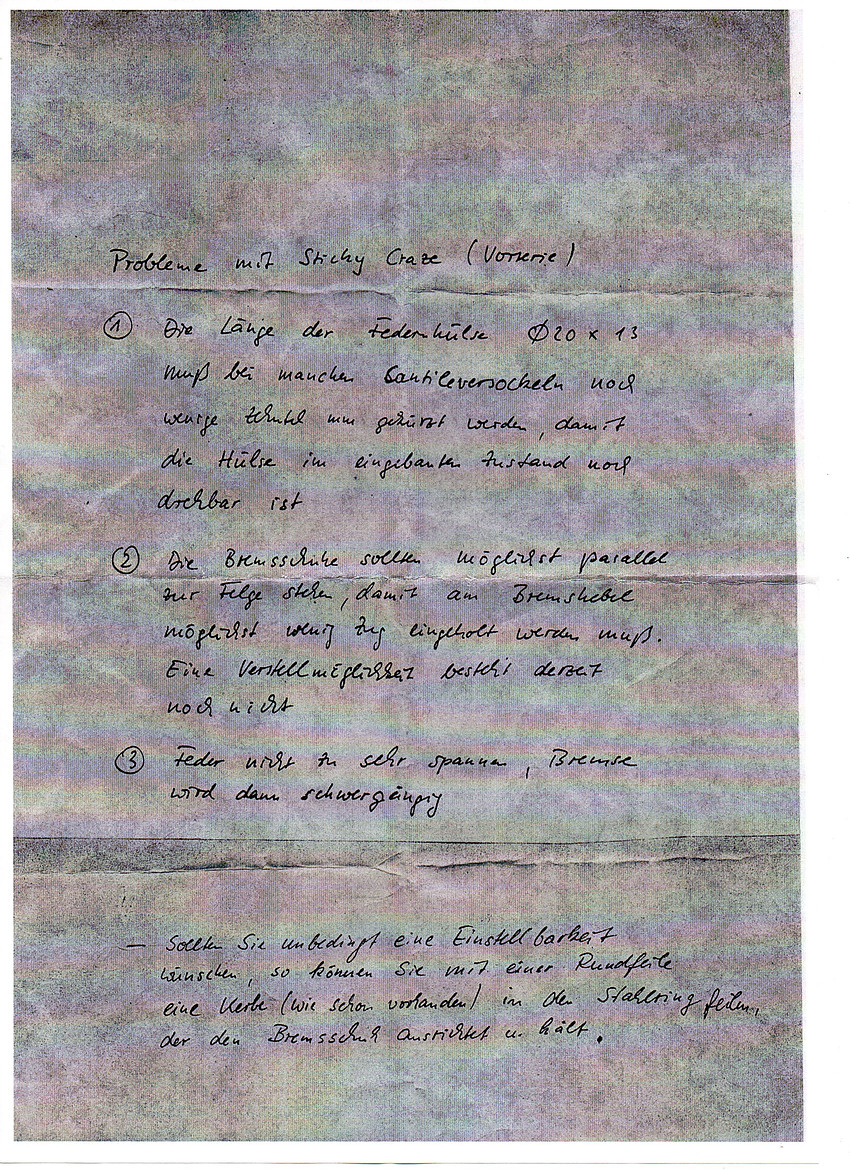 Probleme mit Sticky Craze (Vorserie)
① Die Länge der Federhülse Ø20 x 13
muß bei manchen Cantileversockeln noch
wenige Zehntel mm gekürzt werden, damit
die Hülse im eingebauten Zustand noch
drehbar ist
② Die Bremsschuhe sollten möglichst parallel
zur Felge stehen, damit am Bremshebel
möglichst wenig Zug eingeholt werden muß.
Eine Verstellmöglichkeit besteht derzeit
noch nicht
③ Feder nicht zu sehr spannen, Bremse
wird dann schwergängig
— Sollten Sie unbedingt eine Einstellbarkeit
wünschen, so können Sie mit einer Rundfeile
eine Kerbe (wie schon vorhanden) in den Stahlring feilen,
der den Bremsschuh ausrichtet u. hält.